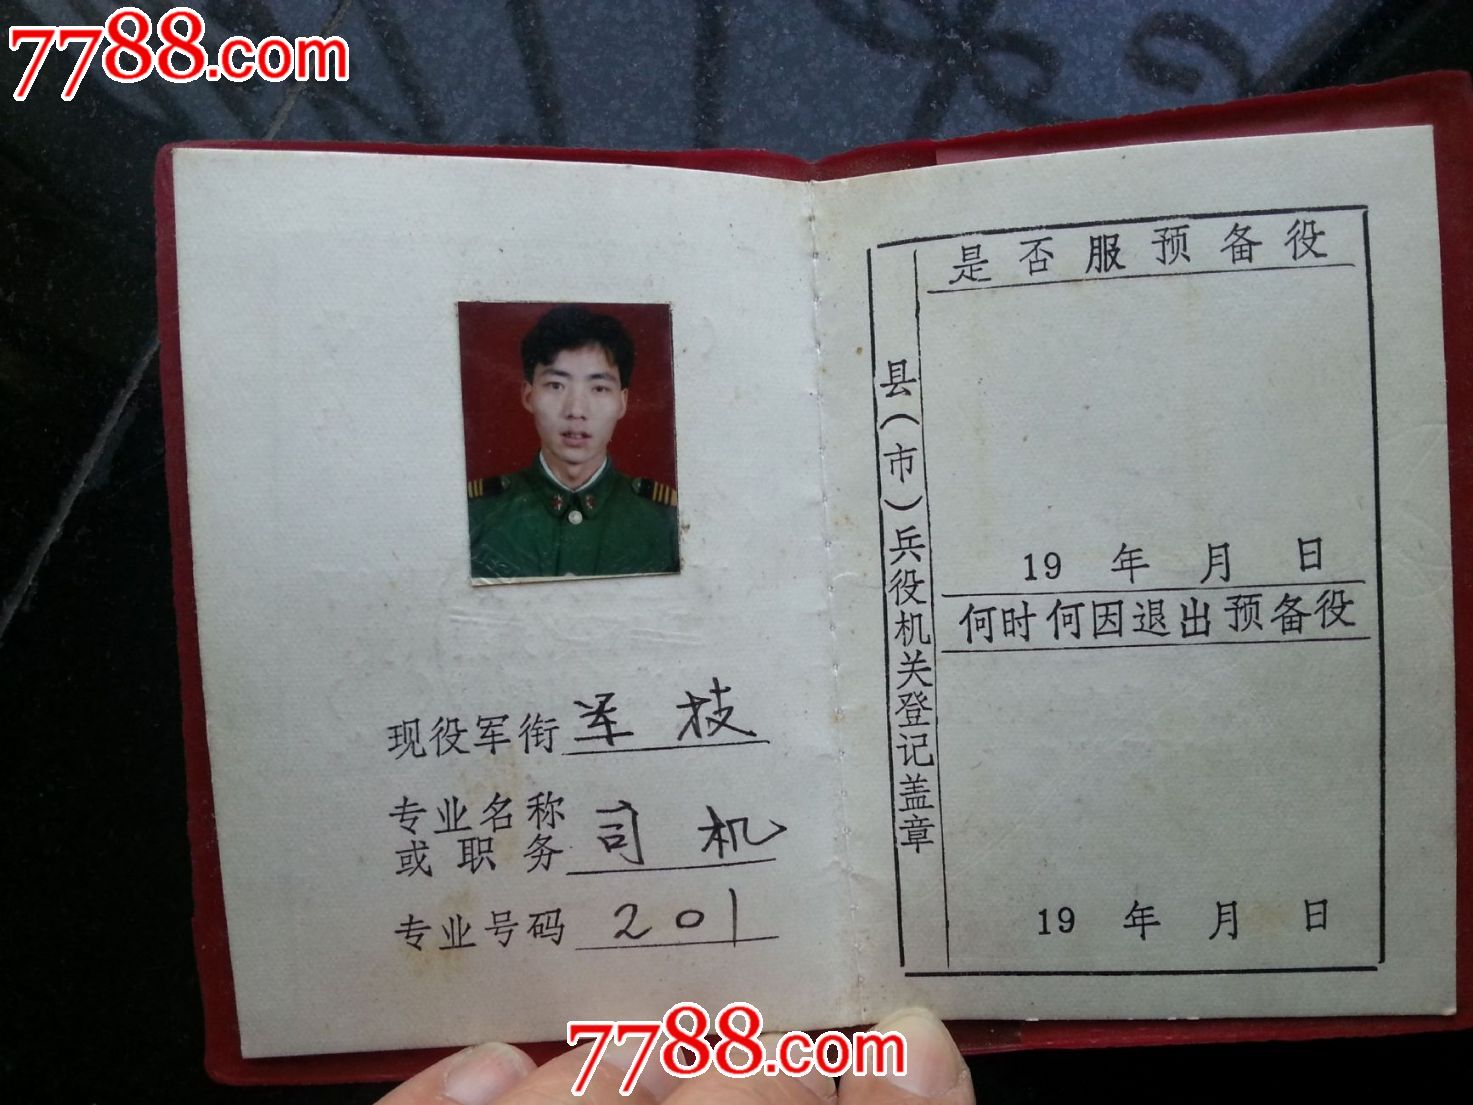 7788.com
现役军衔 军技
专业名称
或职务 司机
专业号码 201
是否服预备役
县(市)兵役机关登记盖章
19 年 月 日
何时何因退出预备役
19 年 月 日
7788.com